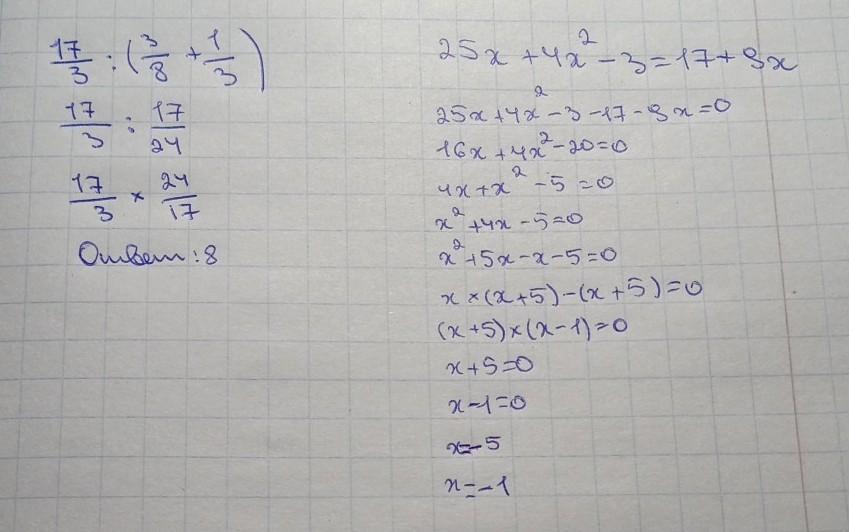 17/3 : (3/8 + 1/3)
17/3 : 17/24
17/3 × 24/17
Ответ: 8
25x + 4x² - 3 = 17 + 9x
25x + 4x² - 3 - 17 - 9x = 0
16x + 4x² - 20 = 0
4x + x² - 5 = 0
x² + 4x - 5 = 0
x² + 5x - x - 5 = 0
x × (x + 5) - (x + 5) = 0
(x + 5) × (x - 1) = 0
x + 5 = 0
x - 1 = 0
x = -5
x = -1